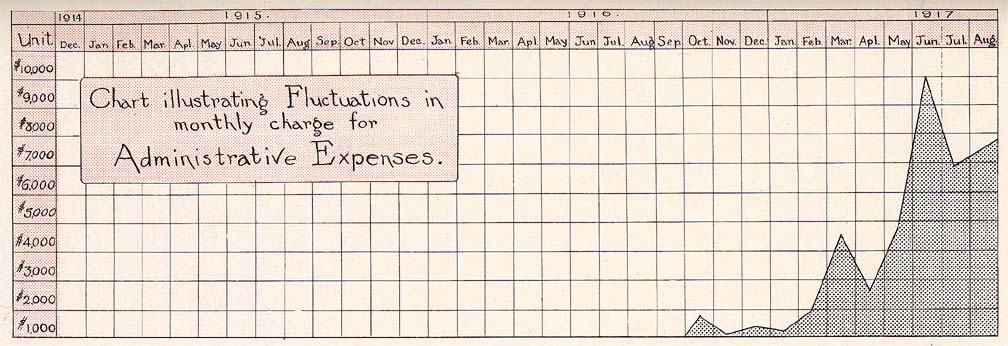 1914 1915. 1916. 1917
Unit Dec. Jan Feb. Mar. Apl. May Jun Jul. Aug Sep. Oct Nov Dec. Jan Feb. Mar. Apl. May Jun Jul. Aug Sep Oct. Nov. Dec. Jan Feb. Mar. Apl. May Jun. Jul. Aug.
$10,000
$9,000
$8000
$7,000
$6,000
$5,000
$4,000
$3,000
$2,000
$1,000
Chart illustrating Fluctuations in
monthly charge for
Administrative Expenses.